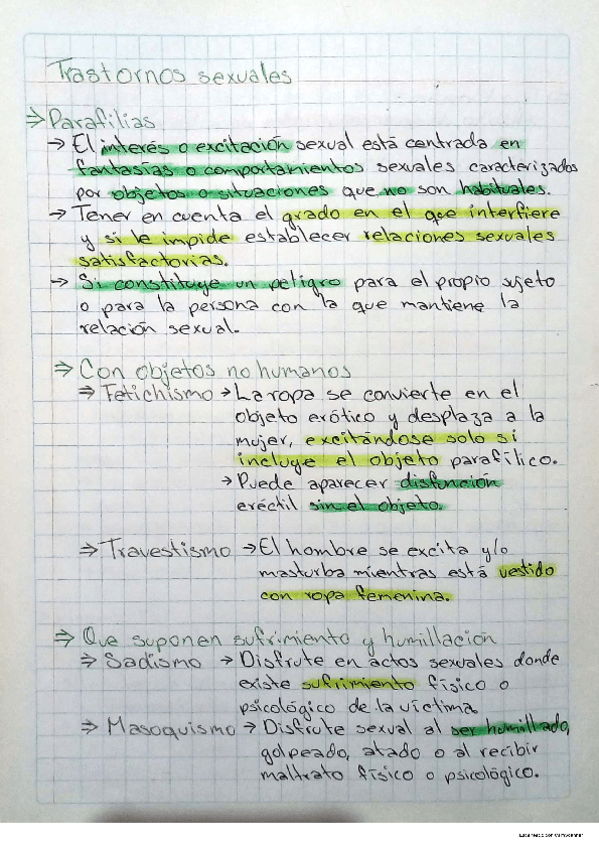 Trastornos sexuales
⇒ Parafilias
→ El interés o excitación sexual está centrada en
fantasías o comportamientos sexuales caracterizados
por objetos o situaciones que no son habituales.
→ Tener en cuenta el grado en el que interfiere
y si le impide establecer relaciones sexuales
satisfactorias.
→ Si constituye un peligro para el propio sujeto
o para la persona con la que mantiene la
relación sexual.
⇒ Con objetos no humanos
⇒ Fetichismo → La ropa se convierte en el
objeto erótico y desplaza a la
mujer, excitándose solo si
incluye el objeto parafílico.
→ Puede aparecer disfunción
eréctil sin el objeto.
⇒ Travestismo → El hombre se excita y/o
masturba mientras está vestido
con ropa femenina.
⇒ Que suponen sufrimiento y humillación
⇒ Sadismo → Disfrute en actos sexuales donde
existe sufrimiento físico o
psicológico de la víctima
⇒ Masoquismo → Disfrute sexual al ser humillado,
golpeado, atado o al recibir
maltrato físico o psicológico.